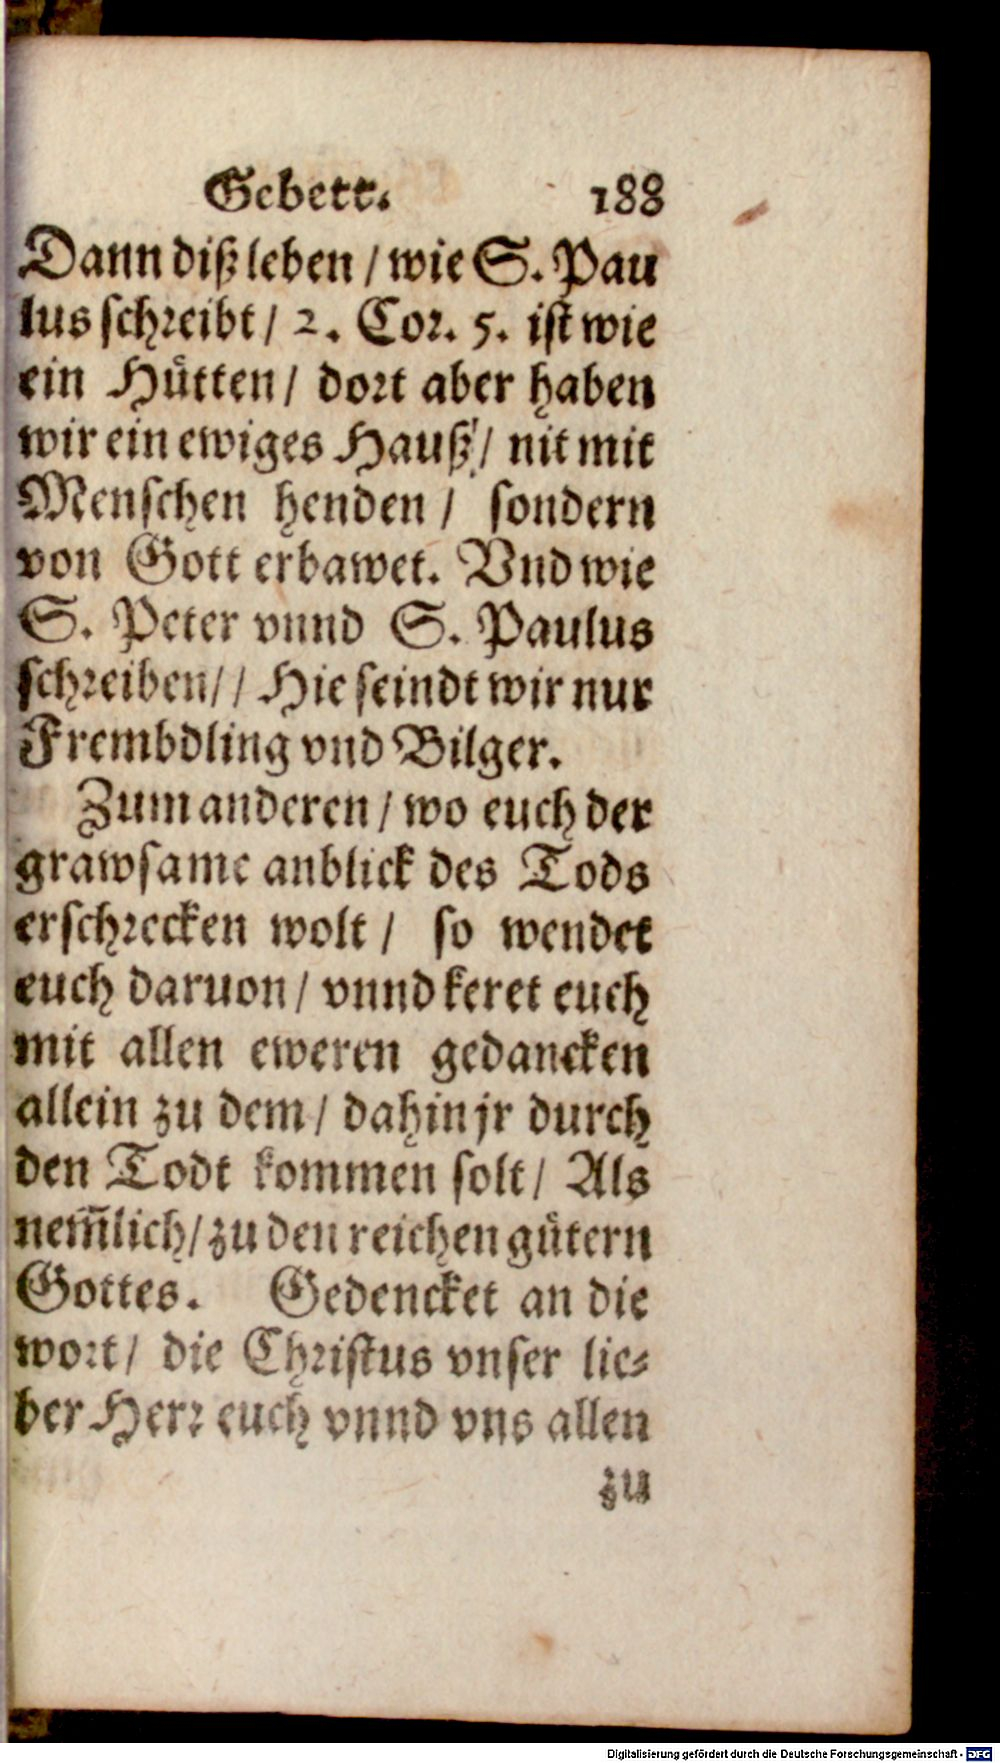 Gebett. 188
Dann diß leben / wie S. Pau
lus schreibt / 2. Cor. 5. ist wie
ein Hütten / dort aber haben
wir ein ewiges Hauß / nit mit
Menschen henden / sondern
von Gott erbawet. Vnd wie
S. Peter vnnd S. Paulus
schreiben / / Hie seindt wir nur
Frembdling vnd Bilger.
Zum anderen / wo euch der
grawsame anblick des Tods
erschrecken wolt / so wendet
euch daruon / vnnd keret euch
mit allen eweren gedancken
allein zu dem / dahin jr durch
den Todt kommen solt / Als
nem̃lich / zu den reichen gütern
Gottes. Gedencket an die
wort / die Christus vnser lie⸗
ber Herr euch vnnd vns allen
zu
Digitalisierung gefördert durch die Deutsche Forschungsgemeinschaft - DFG